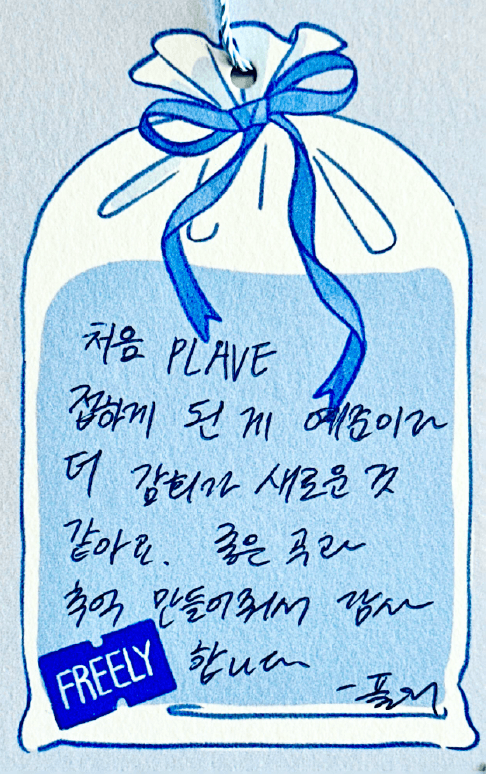 처음 PLAVE
접하게 된 게 예줌이라
더 감회가 새로운 것
같아요. 좋은 곡과
추억 만들어줘서 감사
합니다
FREELY
-플리